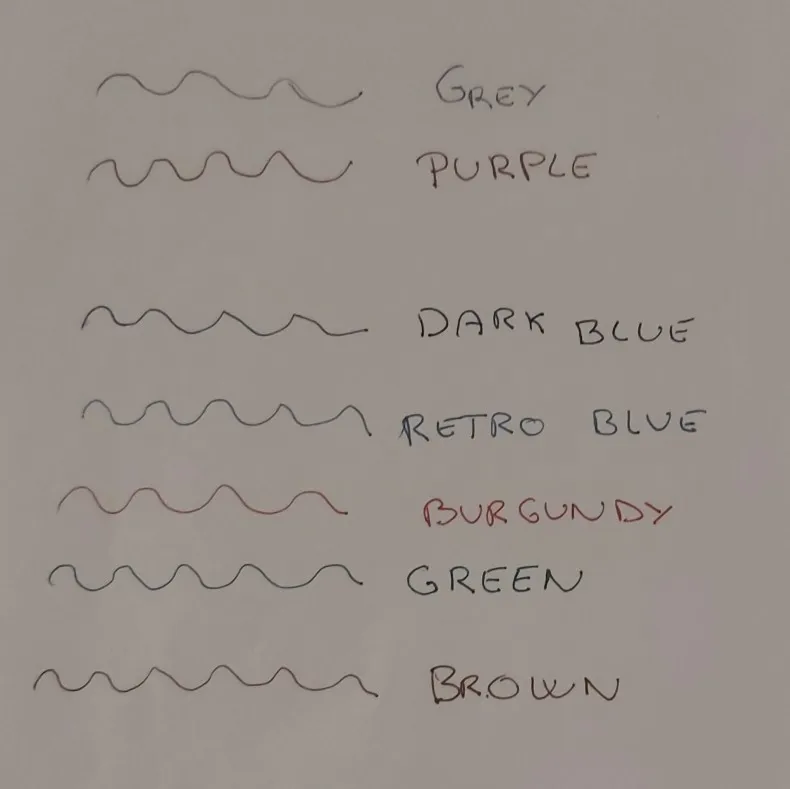 GREY
PURPLE
DARK BLUE
RETRO BLUE
BURGUNDY
GREEN
BROWN